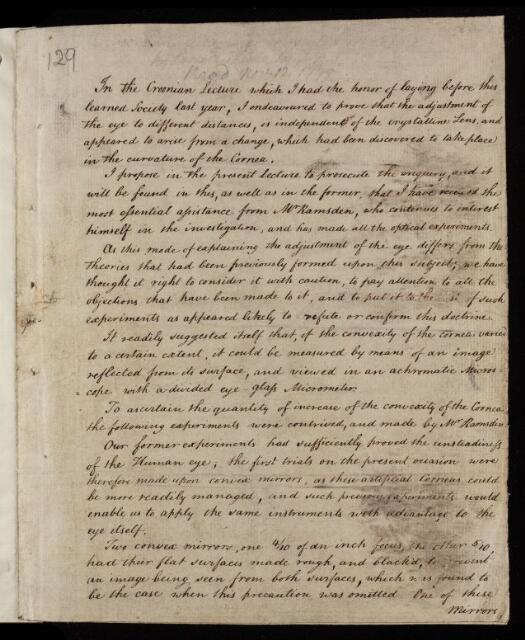 129
In the Croonian Lecture which I had the honor of laying before this
learned Society last year, I endeavoured to prove that the adjustment of
the eye to different distances, is independent of the crystalline Lens, and
appeared to arise from a change, which had been discovered to take place
in the curvature of the Cornea.
I propose in the present Lecture to prosecute the enquiry, and it
will be found in this, as well as in the former, that I have received the
most essential assistance from Mr Ramsden, who continues to interest
himself in the investigation, and has made all the optical experiments.
As this mode of explaining the adjustment of the eye differs from the
theories that had been previously formed upon this subject; we have
thought it right to consider it with caution, to pay attention to all the
objections that have been made to it, and to put it to the of such
experiments as appeared likely to refute or confirm this doctrine.
It readily suggested itself that, if the convexity of the cornea varied
to a certain extent, it could be measured by means of an image
reflected from its surface, and viewed in an achromatic Micros-
cope with a divided eye-glass Micrometer.
To ascertain the quantity of increase of the convexity of the Cornea
the following experiments were contrived, and made by Mr Ramsden.
Our former experiments had sufficiently proved the unsteadiness
of the Human eye; the first trials on the present occasion were
therefore made upon convex mirrors, as these artificial Corneas could
be more readily managed, and such previous experiments would
enable us to apply the same instruments with advantage to the
eye itself.
Two convex mirrors, one 4/10 of an inch focus, the other 5/10
had their flat surfaces made rough, and black'd, to prevent
an image being seen from both surfaces, which was found to
be the case when this precaution was omitted One of these
Mirrors